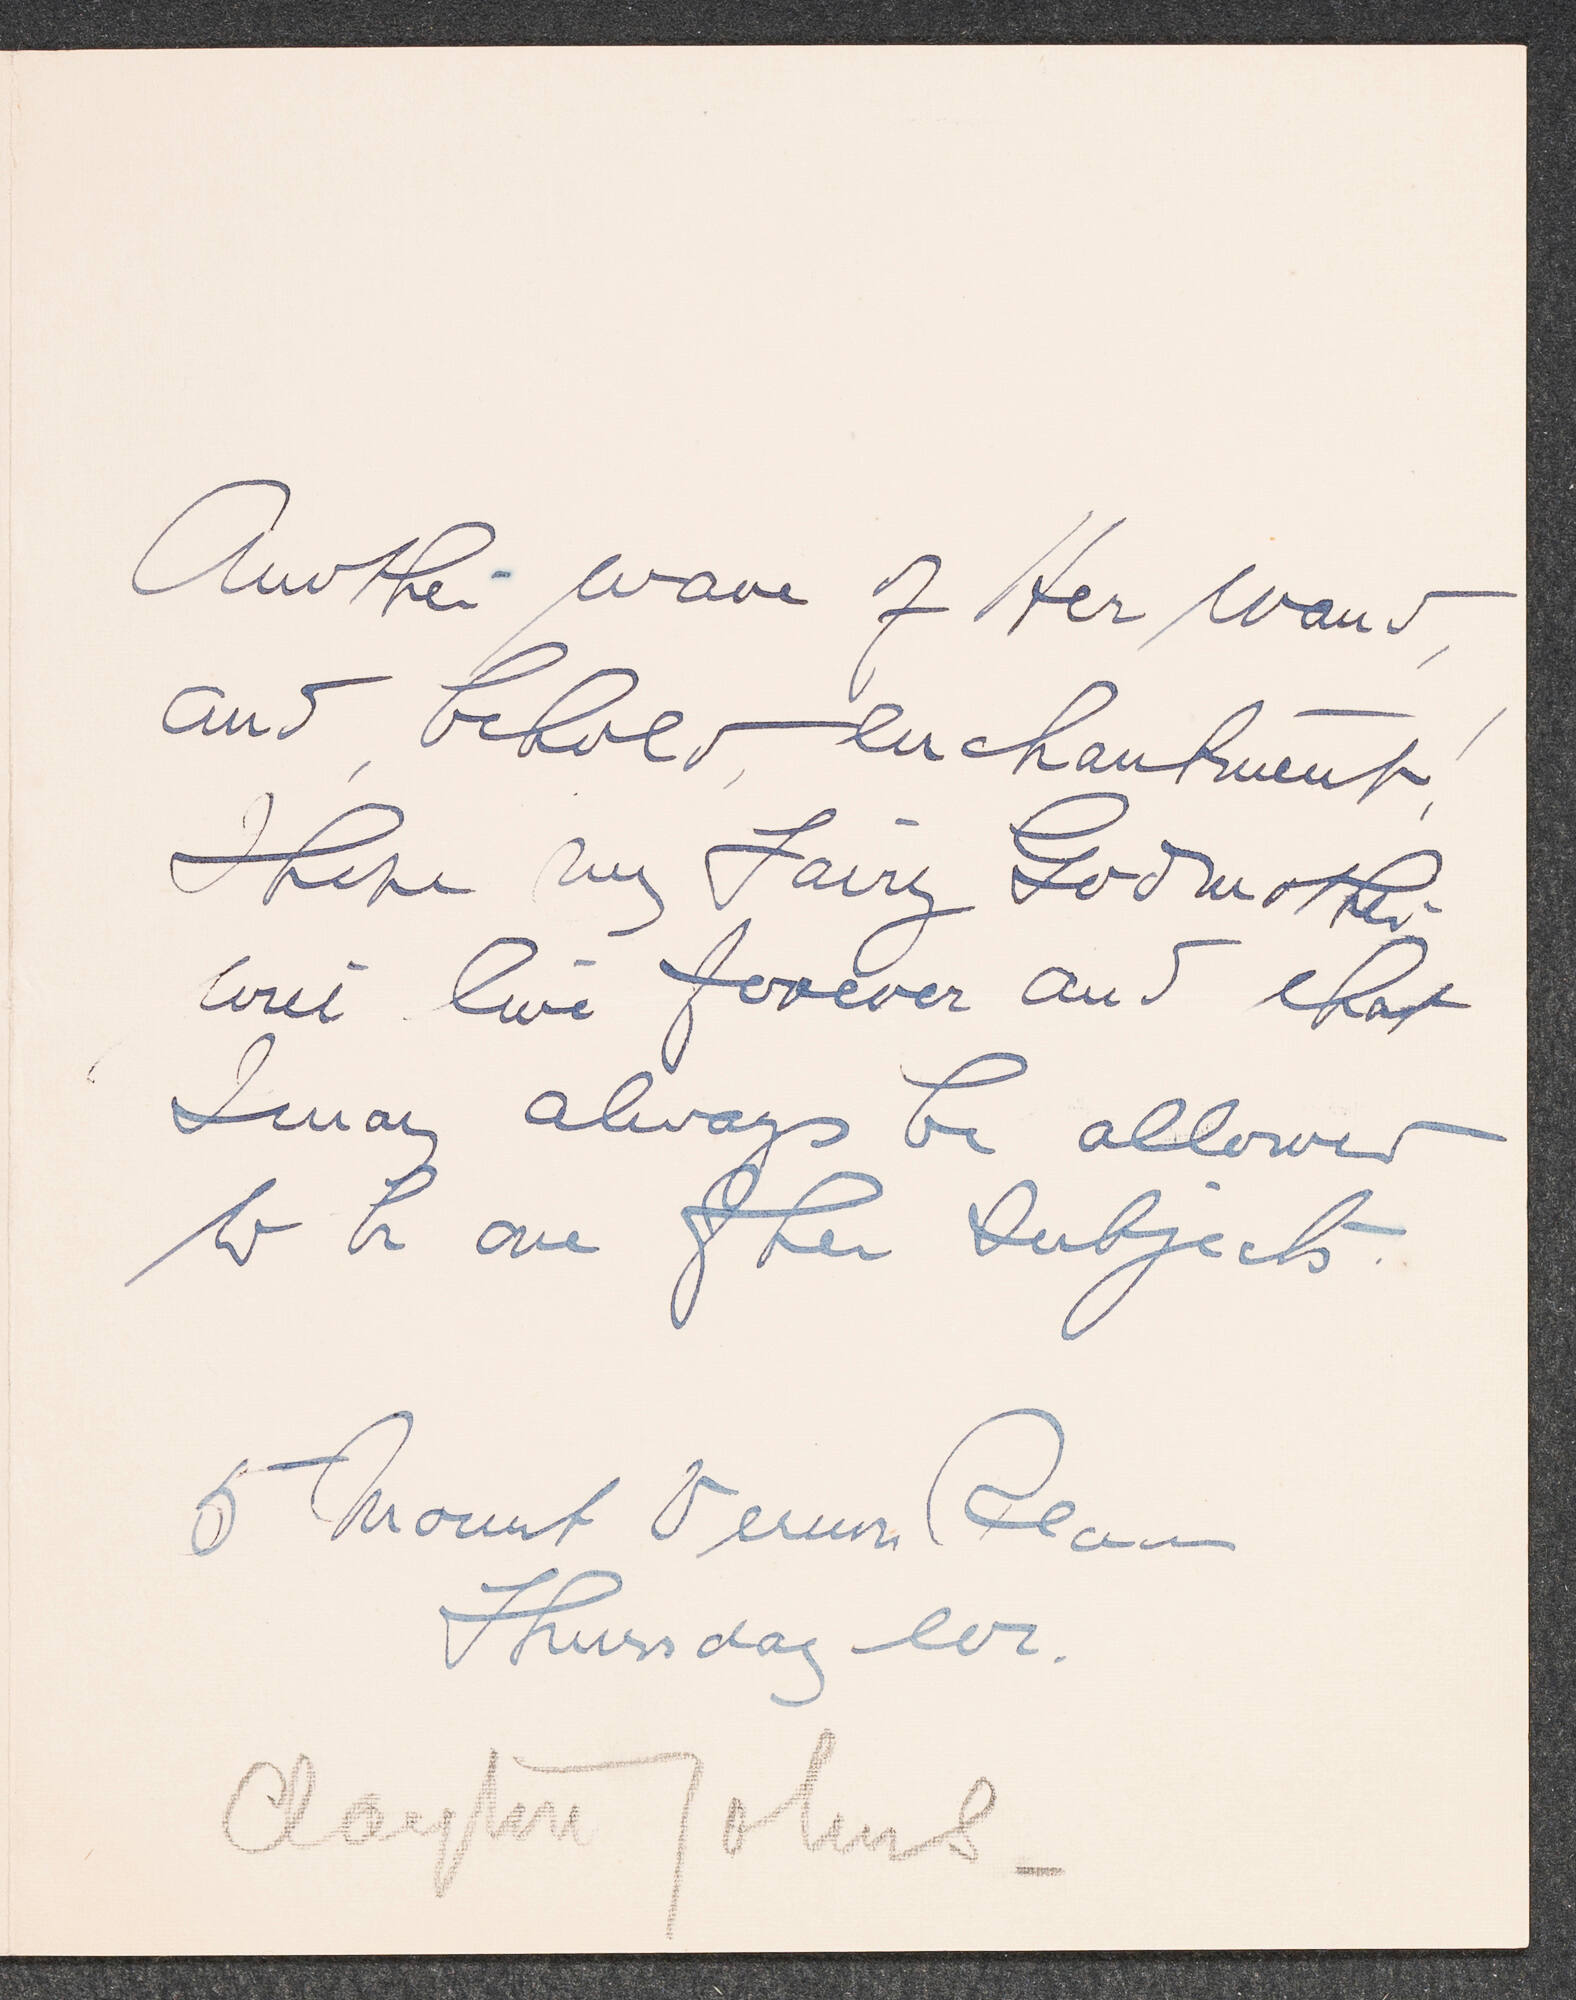 Another wave of Her wand,
and, behold, enchantment!
I hope my Fairy Godmother
will live forever and that
I may always be allowed
to be one of her subjects.
6 Mount Vernon Place
Thursday eve.
Clayton Johns_